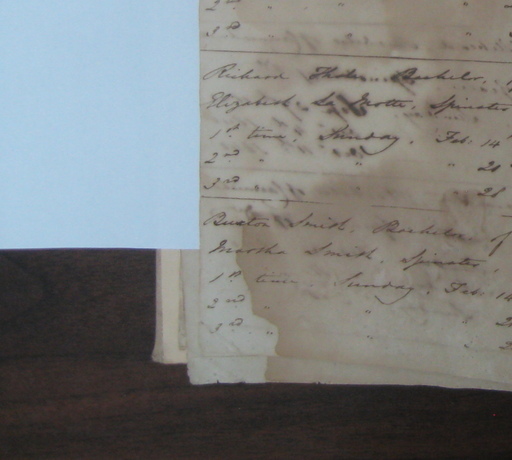 2nd " " "
3rd
Richard Bachelor,
Elizabeth La Motte, Spinster
1st time, Sunday, Feb: 14
2nd " " 21
3rd 28
Buxton Smith, Bachelor, of
Martha Smith, Spinster,
1st time, Sunday, Feb: 14
2nd " " " 2
3rd " " 2